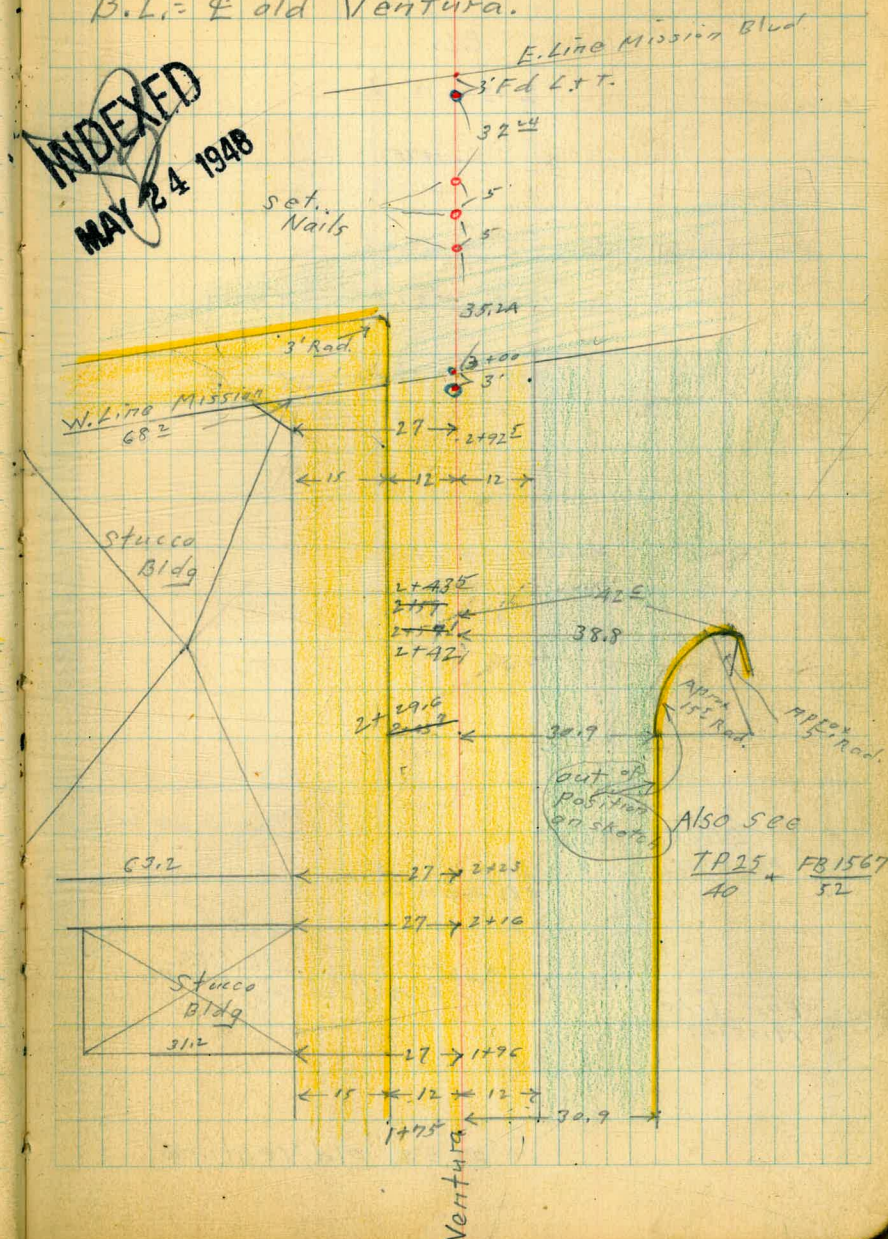 B.L. = ℄ old Ventura.
E. Line Mission Blvd
INDEXED
MAY 24 1948
3' Fd L.+T.
32 24
set.
Nails
5'
5
35.2A
3' Rad.
3+00
3'
W. Line Mission
68 2
27
2+92 5
15
12
12
Stucco
Bldg
2+43 5
2+57
2+57
2+42
42 5
38.8
2+ 29.6
30.9
Aprx
15± Rad.
Aprox
5± Rad.
out of
Position
on sketch
Also see
TP 25
40
FB 1567
52
63.2
27
2+25
27
2+16
Stucco
Bldg
31.2
27
1+96
15
12
12
30.9
1+75
Ventura